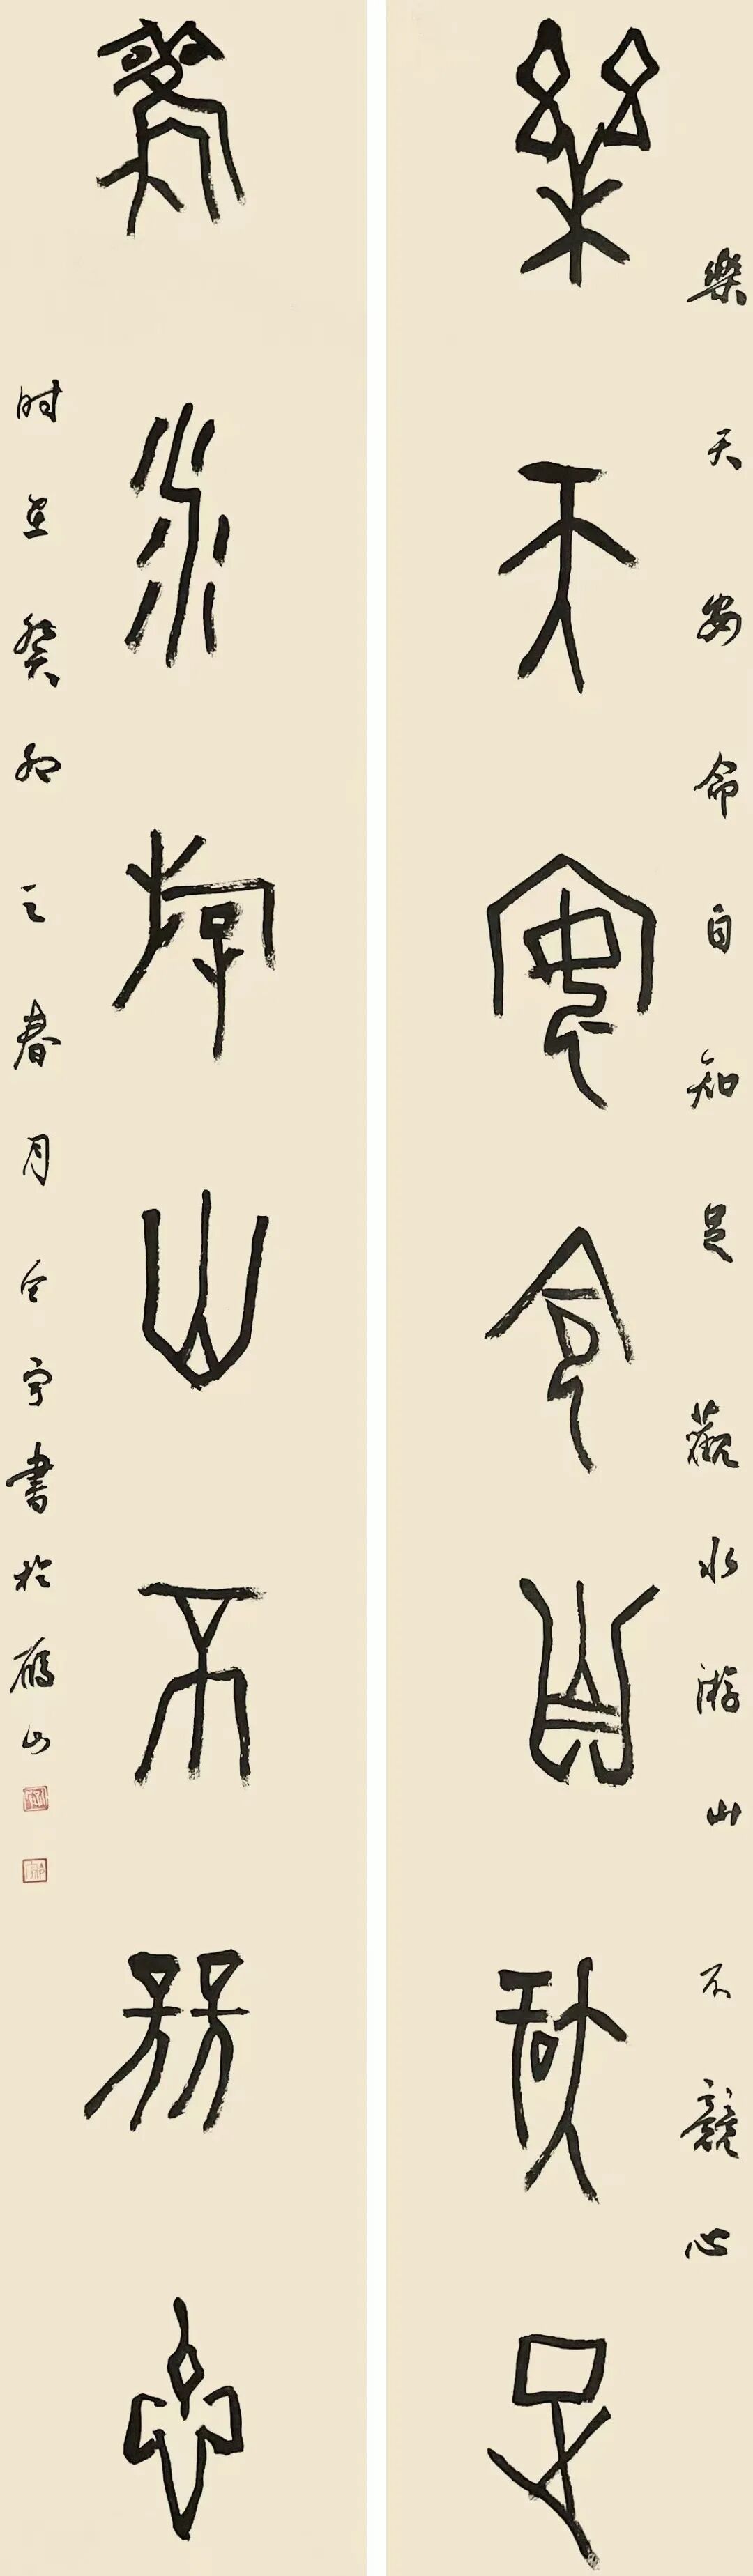 樂天安命自知足 觀水游山不競心
樂天安命自知足
觀水游山不競心
时在癸卯之春月 宇書於雁山